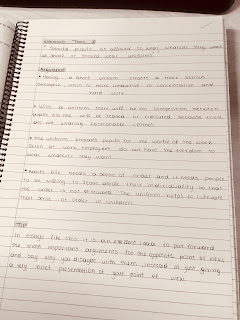 "Should pupils be allowed to wear whatever they want
at school or should wear uniforms"
Arguments
• Having a smart uniform creates a more serious
atmosphere, which is more conducive to concentration and
hard work.
• With a uniform there will be no competition between
pupils no one will be teased or excluded because they
are not wearing fashionable clothes.
• The uniform prepares pupils for the world of the work.
Often at work employees do not have the freedom to
wear whatever they want.
• Adult life needs a sense of order and it needs people
to be willing to leave aside their individuality so that
the order is not disturbed. The uniform helps to inculcate
that sense of order in children.
Tip
In essays like this it is an excellent idea to put forward
the most important arguments for the opposite point of view,
and say why you disagree with them, instead of just giving
a very brief presentation of your point of view.